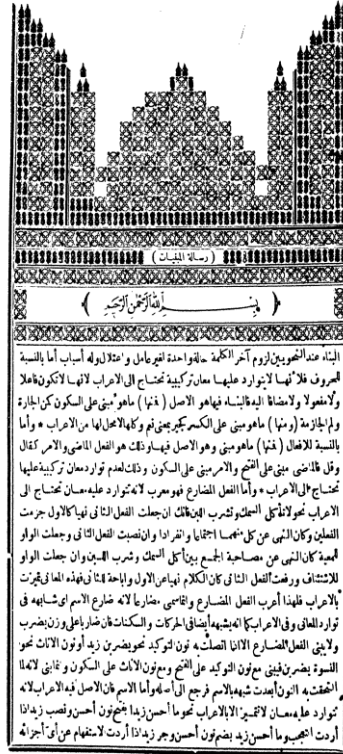 ( رسالة المبنيات )
بسم الله الرحمن الرحيم
البناء عند النحويين لزوم آخر الكلمة حالة واحدة لغير عامل واعتلال وله أسباب أما بالنسبة
للحروف فلأنها لا يتوارد عليها معان تركيبية تحتاج الى الاعراب لانها لا تكون فاعلا
ولا مفعولا ولا مضافا اليه فالبناء فيها هو الاصل (فمنها) ما هو مبنى على السكون كمن الجارة
ولم الجازمة (ومنها) ما هو مبنى على الكسر كجير بمعنى نعم وكلها لا محل لها من الاعراب * وأما
بالنسبة للافعال (فمنها) ما هو مبنى وهو الاصل فيها وذلك هو الفعل الماضى والامر كقال
وقل فالماضى مبنى على الفتح والامر مبنى على السكون وذلك لعدم توارد معان تركيبية عليها
تحتاج الى الاعراب * وأما الفعل المضارع فهو معرب لانه تتوارد عليه معان تحتاج الى
الاعراب نحو لا تأكل السمك وتشرب اللبن فانك ان جعلت الفعل الثانى نهيا كالاول جزمت
الفعلين وكان النهى عن كل منهما اجتماعا وانفرادا وان نصبت الفعل الثانى وجعلت الواو
للمعية كان النهى عن مصاحبة الجمع بين أكل السمك وشرب اللبن وان جعلت الواو
للاستئناف ورفعت الفعل الثانى كان الكلام نهيا عن الاول واباحة للثانى فهذه المعانى تميزت
بالاعراب فلهذا أعرب الفعل المضارع وانما سمى مضارعا لانه ضارع الاسم اى شابهه فى
توارد المعانى وفى الاعراب كما انه يشبهه أيضا فى الحركات والسكنات فان ضاربا على وزن يضرب
ولا يبنى الفعل المضارع الا اذا اتصلت به نون التوكيد نحو يضربن زيد أو نون الاناث نحو
النسوة يضربن فيبنى مع نون التوكيد على الفتح ومع نون الاناث على السكون وانما بنى لانه لما
التحقت به النون أبعدت شبهه بالاسم فرجع الى أصله وأما الاسم فان الاصل فيه الاعراب لانه
تتوارد عليه معان لا تتميز الا بالاعراب نحو ما أحسن زيدا بفتح نون أحسن ونصب زيد اذا
أردت التعجب وما أحسن زيد بضم نون أحسن وجر زيد اذا أردت الاستفهام عن أى أجزائه